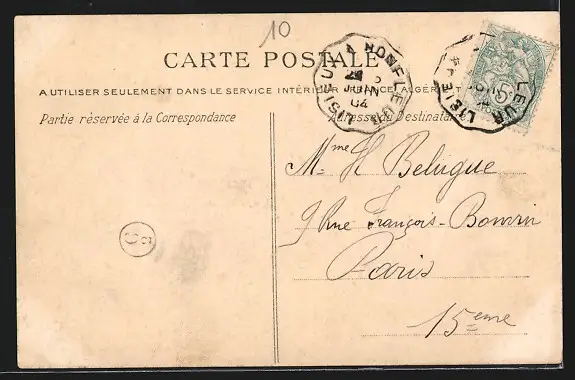 10
CARTE POSTALE
A UTILISER SEULEMENT DANS LE SERVICE INTÉRIEUR FRANCE ALGÉRIE
Partie réservée à la Correspondance
Adresse du Destinataire
LISIEUX A HONFLEUR
JUIN
04
5c
FLEUR LISIE
Mme H Belugue
9 Rue François-Bonvin
Paris
15eme